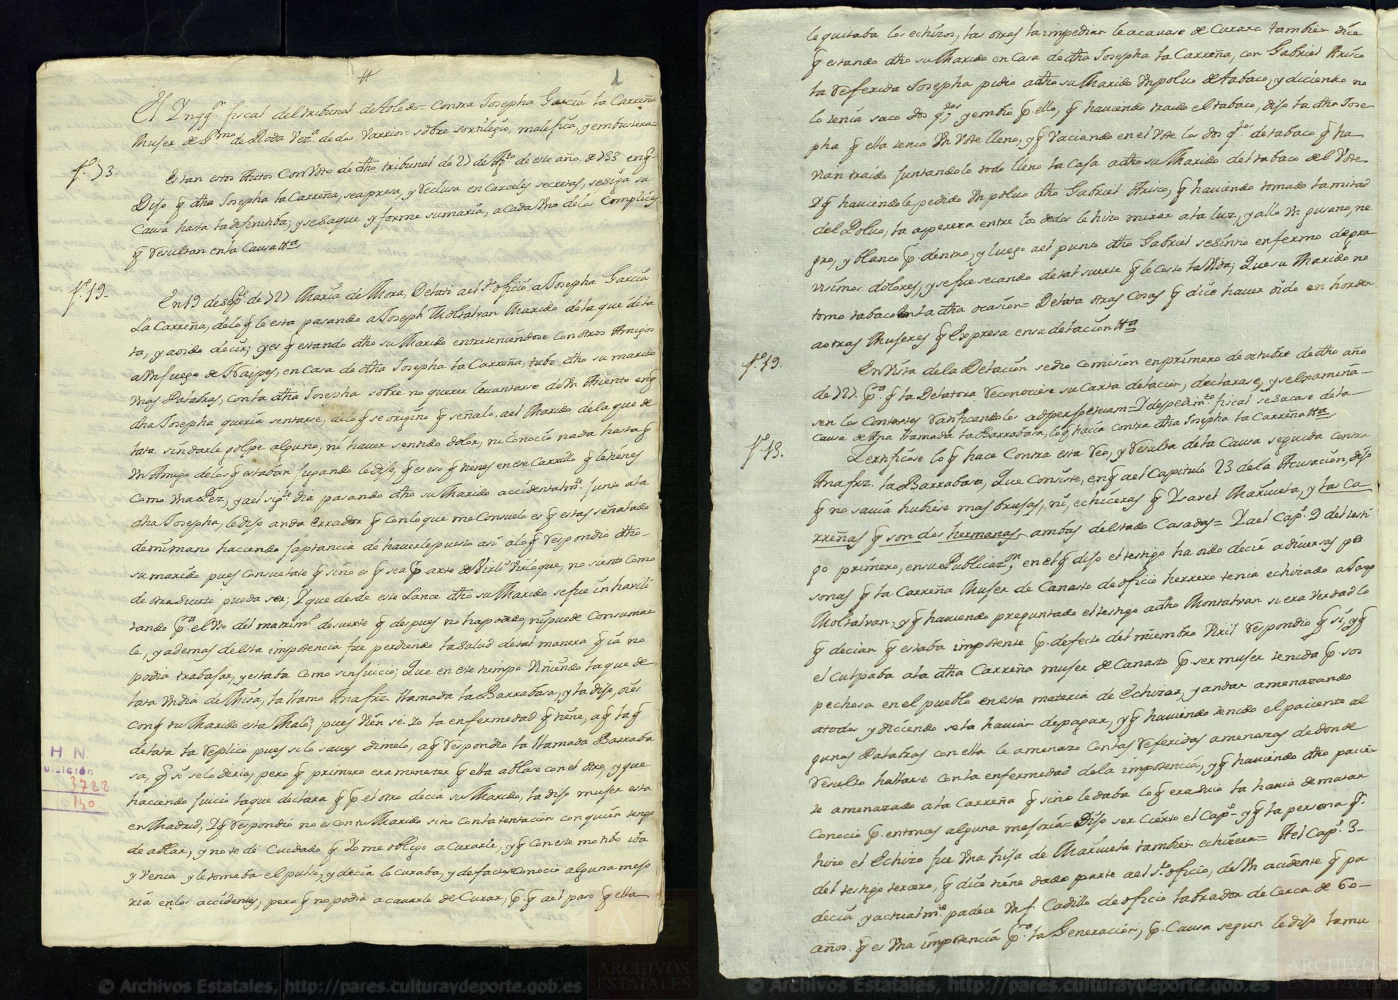 #
1
El Ynqqr fiscal del tribunal de toledo = Contra Josepha Garcia la Carreña
Muger de Pmo de Roda Vezo de dos Varrios sobre sortilegio, maleficio, y embustera
fo 73. Estan estos Autos Con Voto de dho tribunal de 27 de de este año de 733 en q
Dijo q dha Josepha la Carreña, sea presa, y reclusa en Carceles secretas, se siga su
Causa hasta la difinitiba; y se saque, y forme sumaria, a cada Una de las Complices
q resultan en la Causa
fo 19. En 19 de sepe de 727 Maria de Mora, Delató al sto oficio, a Josepha Garcia
La Carreña, de lo q le esta pasando a Joseph Moltalvan Marido de la que dela
ta, y a oido decir; y es q estando dho su Marido entreteniendose con otros Amigos
a Un juego de Naypes, en casa de dha Josepha la Carreña, tubo dho su marido
Unas Palabras, con la dha Josepha sobre no querer levantarse de Un Asiento en q
dha Josepha queria sentarse, de lo q se origino q señalo, al Marido de la que de
lata, sin darle golpe alguno, ni haver sentido dolor, ni Conocio nada hasta q
Un Amigo de los q estaban jugando le dijo, q es eso q tienes en ese Carrillo q le tienes
Como Una Pez, y al sigte dia pasando dho su Marido accidentalmte junto a la
dha Josepha, le dijo anda borracho q Con lo que me Consuelo es q estas señalado
de mi mano haciendo japtancia de haverle puesto asi a lo q respondio dho
su marido pues Consuelate q sino es q sea p arte de Birli Birloque, no siento Como
de otra suerte pueda ser; Y que desde este Lance dho su Marido se fue inhavili
tando pa el Uso del matrimo de suerte q despues no ha podido, ni puede Consumar
le, y ademas de esta impotencia fue perdiendo la salud de tal manera q ia no
podia trabajar, y estaba Como sin juicio; Que en este tiempo Viniendo la que de
lata Un dia de Misa, la llamo Ana frz llamada la Barrabasa, y la dijo, oies
Conq tu Marido esta Malo; pues Bien sé Yo la enfermedad q tiene, a q la q
delata la replico pues si lo saves dimelo, a q respondio la llamada Barraba
sa, q si se lo diria, pero q primero era menester q ella ablase con el otro, y que
haciendo juicio la que declara q p el otro decia su Marido, la dijo mi muger esta
en Madrid, Y q respondio no es con tu Marido sino con la tentacion con quien tengo
de ablar, y no te de Cuidado q Yo me obligo a Curarle, y q Con este motibo iba
y Venia y le tomaba el pulso, y decia le curaba, y de facto Conocio alguna mejo
ria en los accidentes, pero q no podia acavarle de Curar, p q al paso q ella
H N
uisición
3722
140
le quitaba los echizos, las otras la impedian le acavase de Curar: tambien dice
q estando dho su Marido en Casa de dha Josepha la Carreña, con Gabriel Arisco
la referida Josepha pidio a dho su Marido Un polvo de tabaco, y diciendo no
lo tenia saco dos qtos, y embio p ello, q haviendo traido el tabaco, dijo la dha Jose
pha q ella tenia Un Vote lleno, y q Vaciando en el Vote los dos qtos de tabaco q ha
vian traido juntandolo todo lleno la Caja a dho su Marido del tabaco del Vote
Y q haviendole pedido Un polvo dho Gabriel Arisco, q haviendo tomado la mitad
del Polvo, la aspereza entre los dedos le hizo mirar a la luz, y allo Un gusano, ne
gro, y blanco p dentro, y luego al punto dho Gabriel se sintio enfermo de gra
visimos dolores, y se fue secando de tal suerte q le costo la Vida; Que su Marido no
tomo tabaco en la dha ocasion = Delata otras Cosas q dice haver oido en horden
a otras Mugeres q Expresa en su delacion
fo 19. En Vista de la Delacion se dio Comision en primero de octubre de dho año
de 727 pa q la Delatora reconociese su Carta delacion, declarase, y se examina
sen los Contestes ratificandolos ad perpetuam = Y de pedimto fiscal se sacase de la
Causa de Ana llamada la Barrabasa, lo q hacia contra dha Josepha la Carreña
fo 13. Zertificase lo q hace Contra esta Reo, y resulta de la Causa seguida contra
Ana frz la Barrabasa, Que Consiste, en q al Capitulo 23 de la Acusacion, dijo
q no savia hubiese mas brujas, ni, echiceras q Ysavel Mañueta, y las Ca
rreñas q son dos hermanas, ambas de estado Casadas = Y al Capo 9 del testi
go primero, en su Publicazn en el q dijo el testigo ha oido decir a diversas per
sonas q la Carreña Muger de Canasto de oficio herrero tenia echizado a Jose
Moltalvan; y q haviendo preguntado el testigo a dho Montalvan si era Verdad lo
q decian q estaba impotente p defecto del miembro Viril respondio q si, y q
el Culpaba a la dha Carreña muger de Canasto p ser muger tenida p sos
pechosa en el pueblo en esta materia de Echizos, y andar amenazando
a todos y diciendo se la havian de pagar, y q haviendo tenido el paciente al
gunas Palabras con ella le amenazo con las referidas amenazas de donde
resulto hallarse con la enfermedad de la impotencia, y q haviendo dho pacien
te amenazado a la Carreña q sino le daba lo q era de la havia de matar
Conocio p entonces alguna mejoria = Dijo ser Cierto el Capo y q la persona q
hizo el Echizo fue Una hija de Mañueta tambien echizera = Al Capo 3
del testigo terzero, q dice tiene dado parte al sto oficio, de Un accidente q pa
decia y actualmte padece de oficio labrador de Cerca de 60
años q es Una impotencia pa la Generacion, q Causa segun le dijo la mu
© Archivos Estatales, http://pares.culturaydeporte.gob.es
ARCHIVOS ESTATALES
© Archivos Estatales, http://pares.culturaydeporte.gob.es
ARCHIVOS ESTATALES